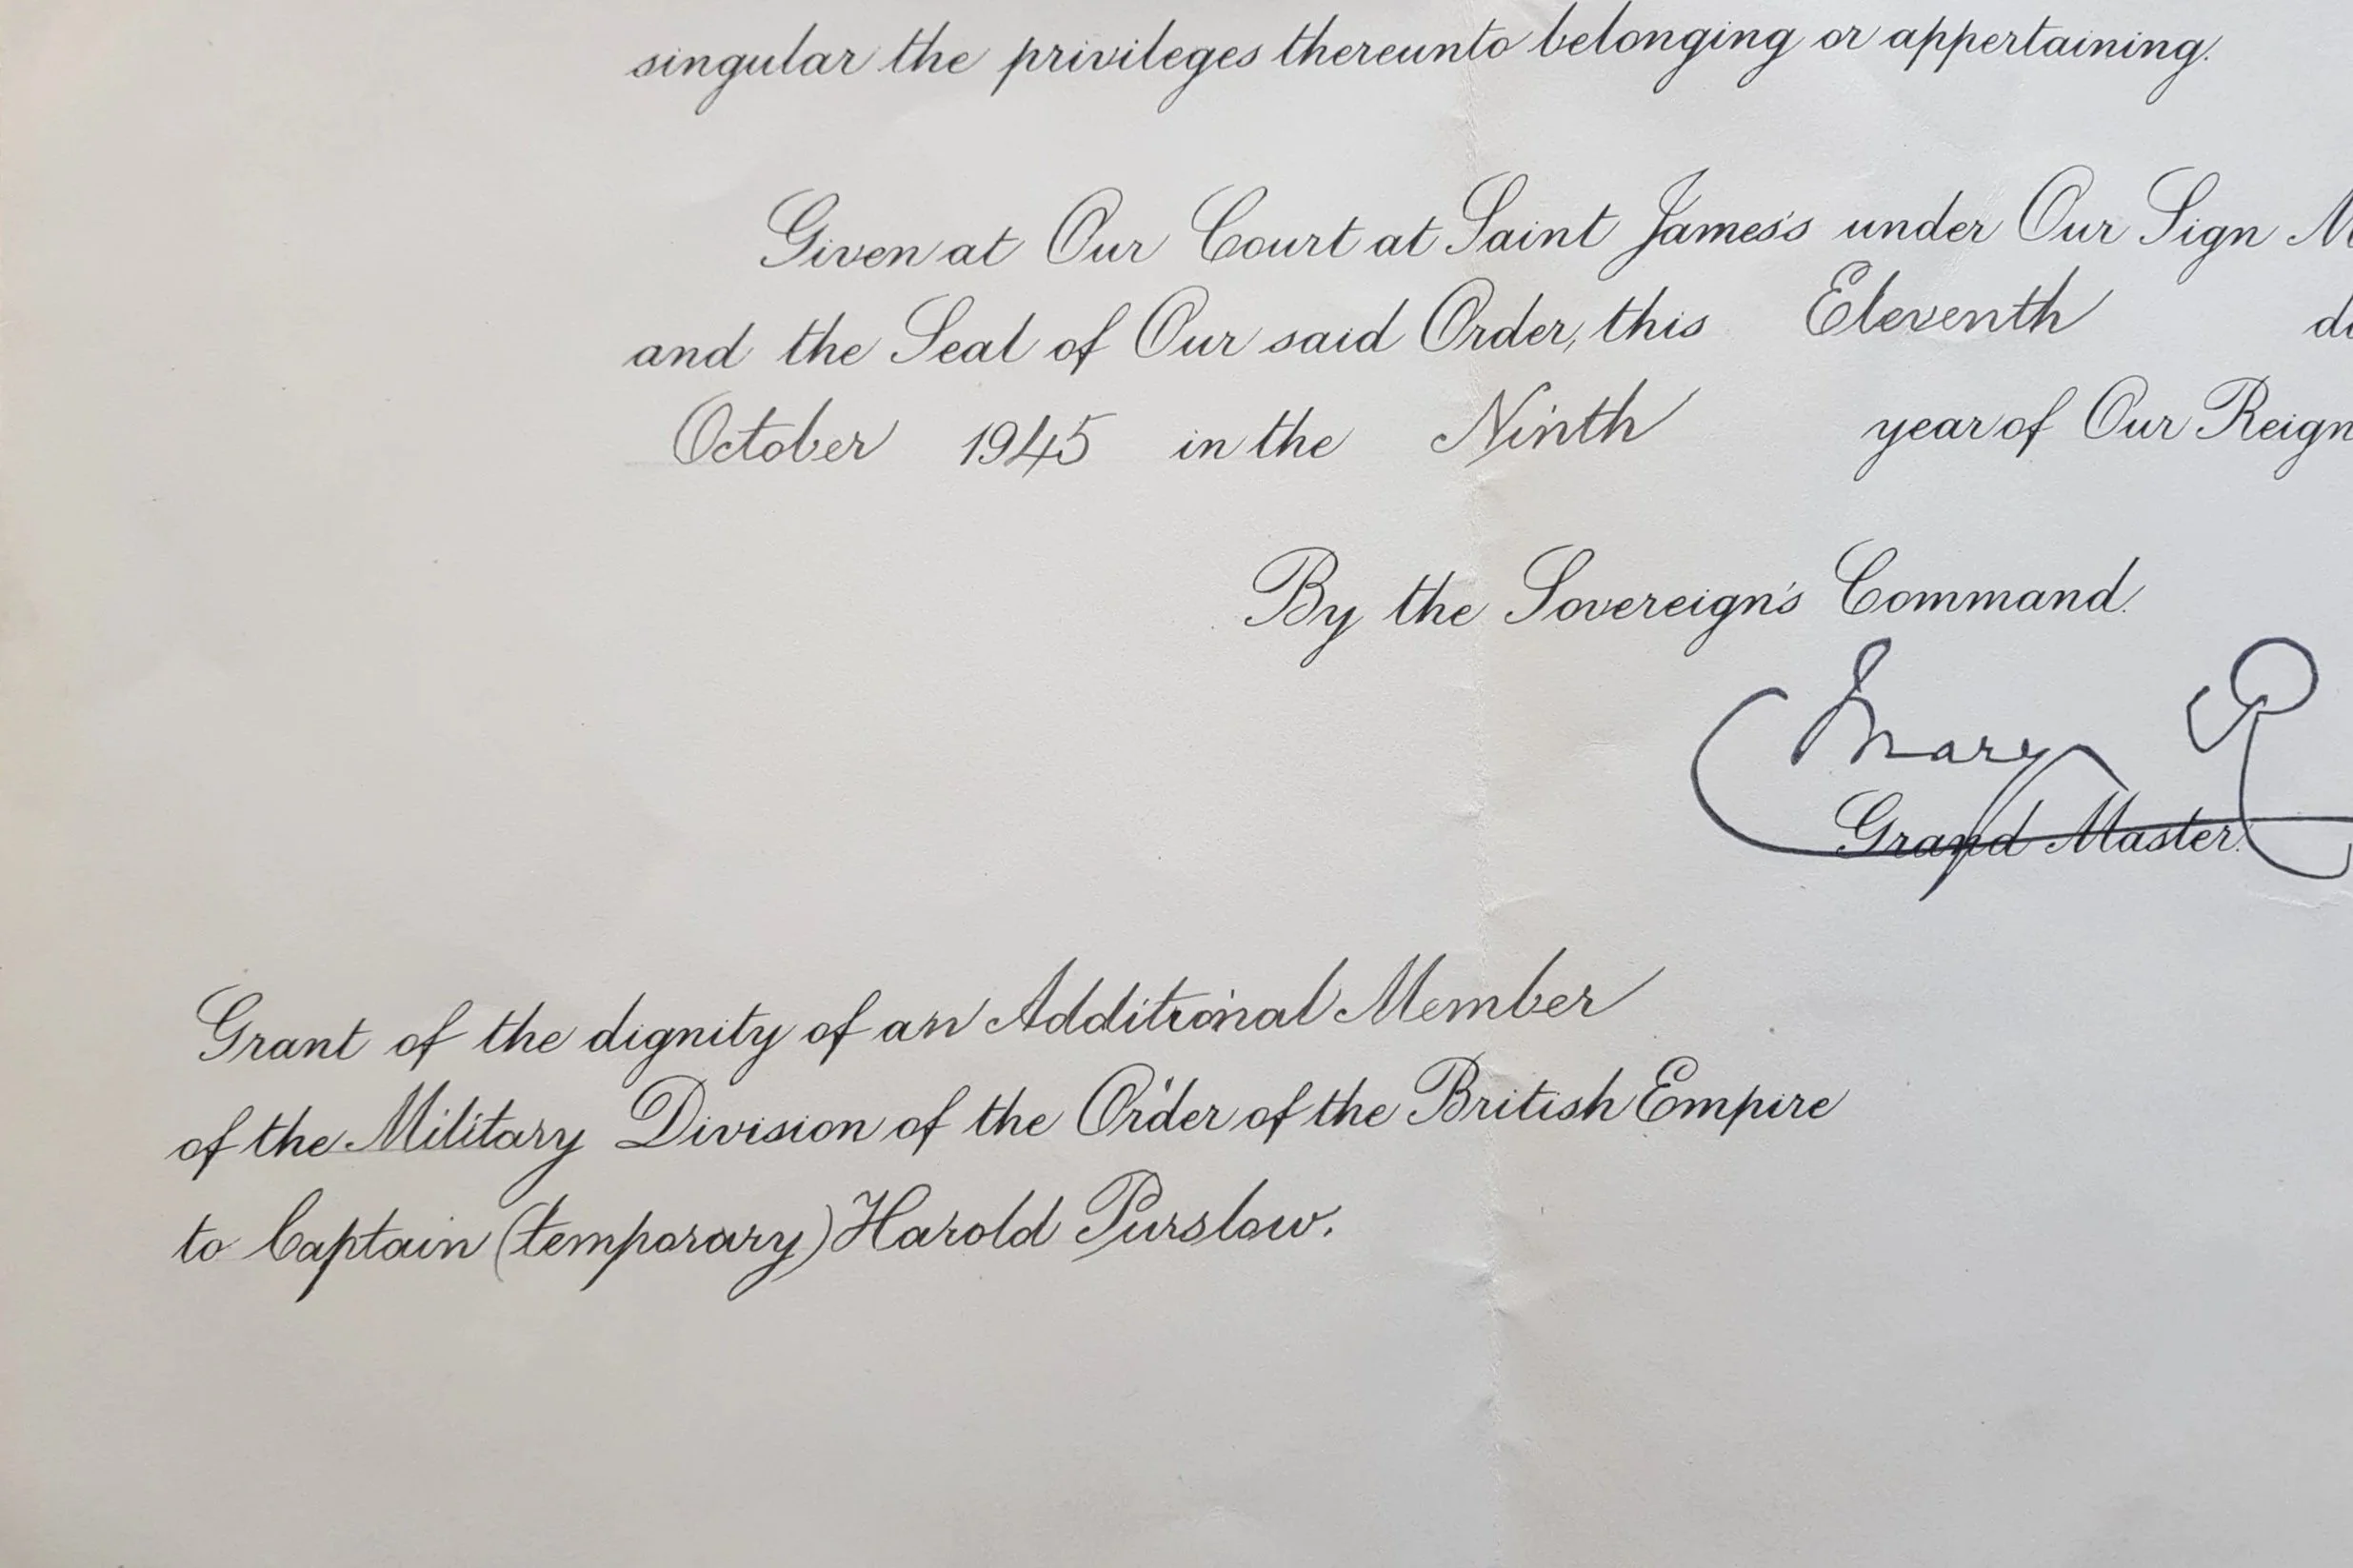 singular the privileges thereunto belonging or appertaining.
Given at Our Court at Saint James's under Our Sign M
and the Seal of Our said Order, this Eleventh da
October 1945 in the Ninth year of Our Reign
By the Sovereign's Command.
Mary R
Grand Master.
Grant of the dignity of an Additional Member
of the Military Division of the Order of the British Empire
to Captain (temporary) Harold Purslow.